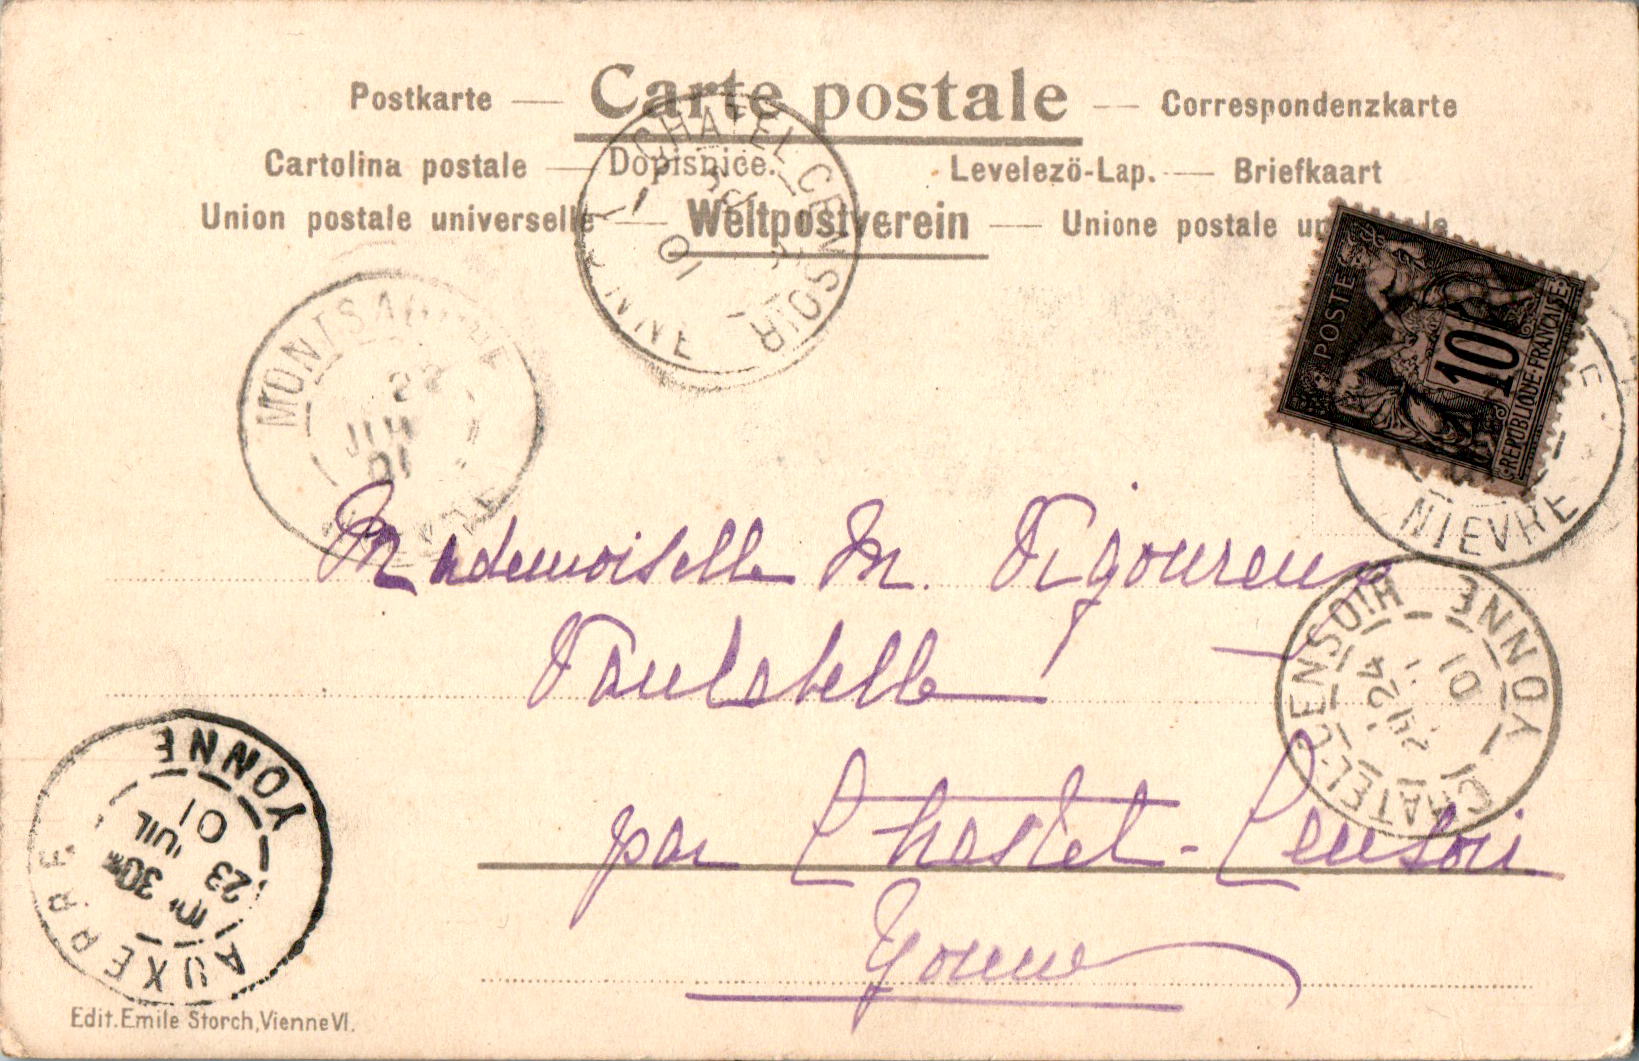 Postkarte — Carte postale — Correspondenzkarte
Cartolina postale — Dopisnice. Levelezö-Lap. — Briefkaart
Union postale universelle — Weltpostverein — Unione postale
CHATEL-CENSOIR
YONNE
01
MONTSAUCHE
22
JUIL
01
POSTE
10
REPUBLIQUE·FRANÇAISE
NIEVRE
Mademoiselle M. Vigoureux
Vaulabelle
par Chastel-Censoir
Yonne
CHATEL-CENSOIR
YONNE
24
01
AUXERRE
YONNE
23
JUIL
01
Edit. Emile Storch, Vienne VI.